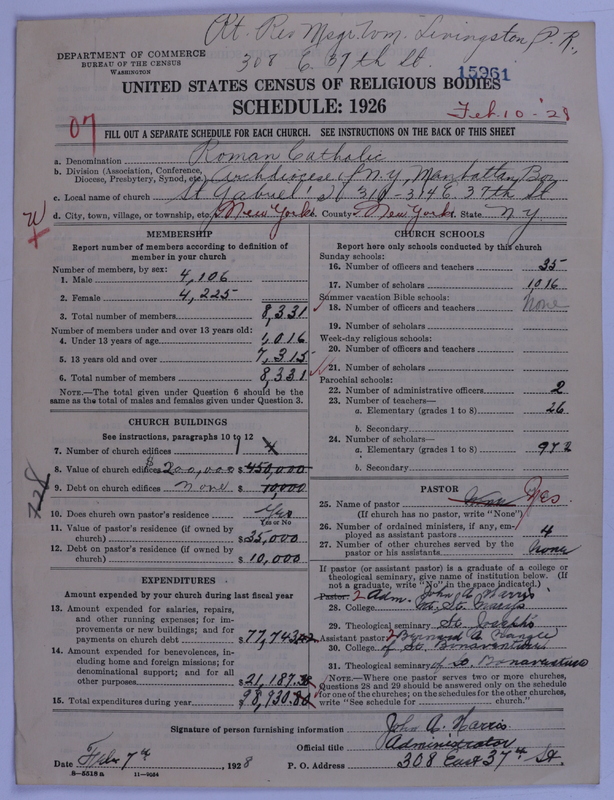 Rt. Rev Msgr. Wm. Livingston, P. R.,
308 E. 37th St.
DEPARTMENT OF COMMERCE
BUREAU OF THE CENSUS
WASHINGTON
15961
UNITED STATES CENSUS OF RELIGIOUS BODIES
SCHEDULE: 1926
Feb. 10-'28
07
FILL OUT A SEPARATE SCHEDULE FOR EACH CHURCH. SEE INSTRUCTIONS ON THE BACK OF THIS SHEET
a. Denomination Roman Catholic
b. Division (Association, Conference, Diocese, Presbytery, Synod, etc.) Archdiocese of N.Y., Manhattan, Bor
c. Local name of church St Gabriel's 310-314 E 37th St
d. City, town, village, or township, etc. New York County New York State N Y
MEMBERSHIP
Report number of members according to definition of
member in your church
Number of members, by sex:
1. Male 4,106
2. Female 4,225
3. Total number of members 8,331
Number of members under and over 13 years old:
4. Under 13 years of age 1,016
5. 13 years old and over 7,315
6. Total number of members 8,331
NOTE.—The total given under Question 6 should be
same as the total of males and females given under Question 3.
CHURCH BUILDINGS
See instructions, paragraphs 10 to 12
7. Number of church edifices 1 4
8. Value of church edifices $200,000 $450,000
9. Debt on church edifices none $10,000
10. Does church own pastor's residence Yes
Yes or No
11. Value of pastor's residence (if owned by
church) $35,000
12. Debt on pastor's residence (if owned by
church) $10,000
EXPENDITURES
Amount expended by your church during last fiscal year
13. Amount expended for salaries, repairs,
and other running expenses; for im-
provements or new buildings; and for
payments on church debt $77,743
14. Amount expended for benevolences, in-
cluding home and foreign missions; for
denominational support; and for all
other purposes $21,187
15. Total expenditures during year $98,930
CHURCH SCHOOLS
Report here only schools conducted by this church
Sunday schools:
16. Number of officers and teachers 35
17. Number of scholars 1016
Summer vacation Bible schools:
18. Number of officers and teachers None
19. Number of scholars
Week-day religious schools:
20. Number of officers and teachers
21. Number of scholars
Parochial schools:
22. Number of administrative officers 2
23. Number of teachers—
a. Elementary (grades 1 to 8) 26
b. Secondary
24. Number of scholars—
a. Elementary (grades 1 to 8) 972
b. Secondary
PASTOR
25. Name of pastor None Yes
(If church has no pastor, write "None")
26. Number of ordained ministers, if any, em-
ployed as assistant pastors 4
27. Number of other churches served by the
pastor or his assistants None
If pastor (or assistant pastor) is a graduate of a college or
theological seminary, give name of institution below. (If
not a graduate, write "No" in the space indicated.)
Pastor: 2 Adm. John A. Harris
28. College Mt. St. Mary's
29. Theological seminary St. Joseph's
Assistant pastor: 2 Bernard A.
30. College of St. Bonaventure
31. Theological seminary of St. Bonaventure
NOTE.—Where one pastor serves two or more churches,
Questions 28 and 29 should be answered only on the schedule
for one of the churches; on the schedules for the other churches,
write "See schedule for church."
Signature of person furnishing information John A. Harris
Official title Administrator
Date Feb 7th, 1928 P. O. Address 308 East 37th St.
8—5518a 11—9024